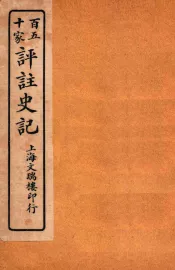 百五
十家
評註史記
上海文瑞樓印行